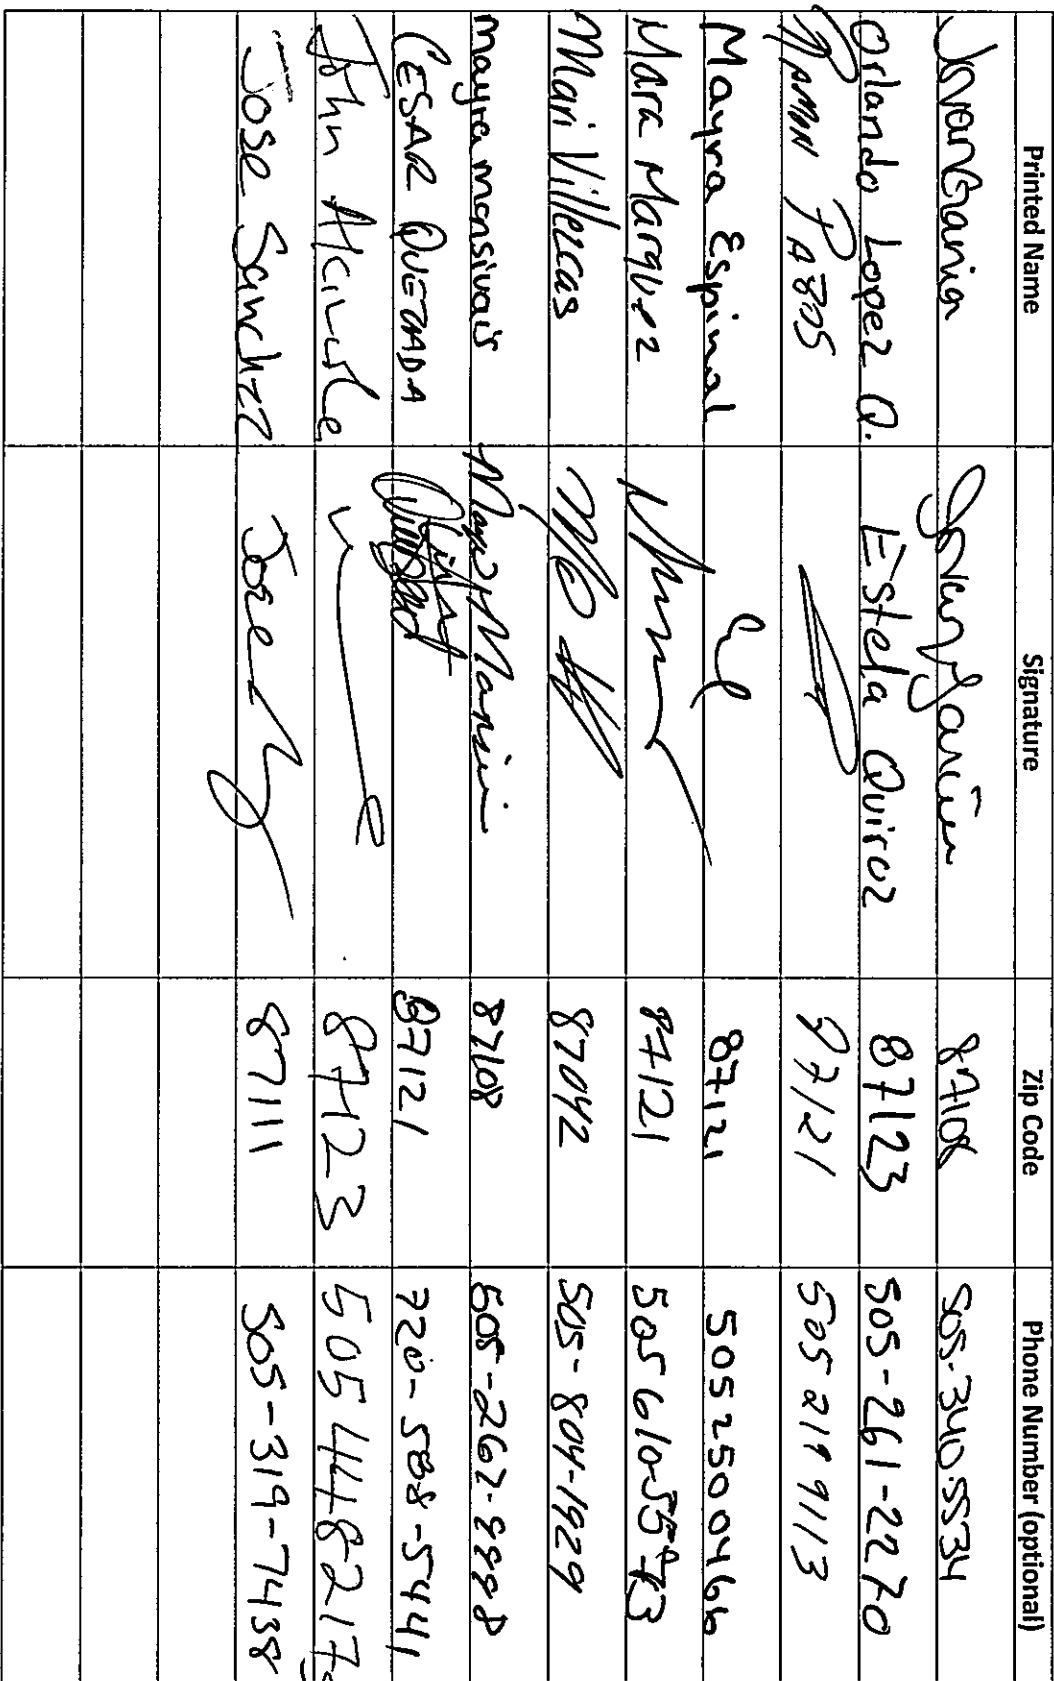 Printed Name Signature Zip Code Phone Number (optional)
87108 505-340-5534
Orlando Lopez Q. Estela Quiroz 87123 505-261-2270
Ramon Pabos 87121 505 219 9113
Mayra Espinal 87121 5052500466
Mara Marquez 87121
Mari Villezcas 87042 505-804-1929
mayra monsivais 87108
CESAR QUEZADA 87121 720-588-5441
John 87123 505 448217
Jose Sanchez Jose 87111 505-319-7438